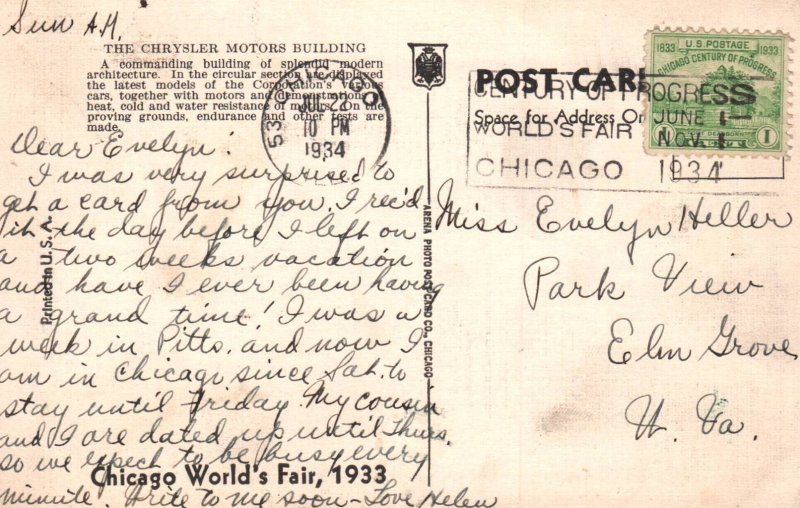 Sun A.M.
THE CHRYSLER MOTORS BUILDING
A commanding building of splendid modern
architecture. In the circular section are displayed
the latest models of the Corporation's various
cars, together with motors and demonstrations of
heat, cold and water resistance of motors. On the
proving grounds, endurance and other tests are
made.
Dear Evelyn:
I was very surprised to
get a card from you. I rec'd
it the day before I left on
a two weeks vacation
and have I ever been having
a grand time! I was a
week in Pitts. and now I
am in Chicago since Sat. to
stay until Friday. My cousin
and I are dated up until Thurs.
so we expect to be busy every
minute. Write to me soon - Love Helen
Chicago World's Fair, 1933
Printed in U.S.A.
ARENA PHOTO POST CARD CO., CHICAGO
CHICAGO
53
JUL 22
10 PM
1934
POST CARD
Space for Address On
CENTURY OF PROGRESS
JUNE 1-
WORLD'S FAIR NOV. 1
CHICAGO 1934
1833 U.S. POSTAGE 1933
CHICAGO CENTURY OF PROGRESS
1 1
Miss Evelyn Heller
Park View
Elm Grove
W. Va.